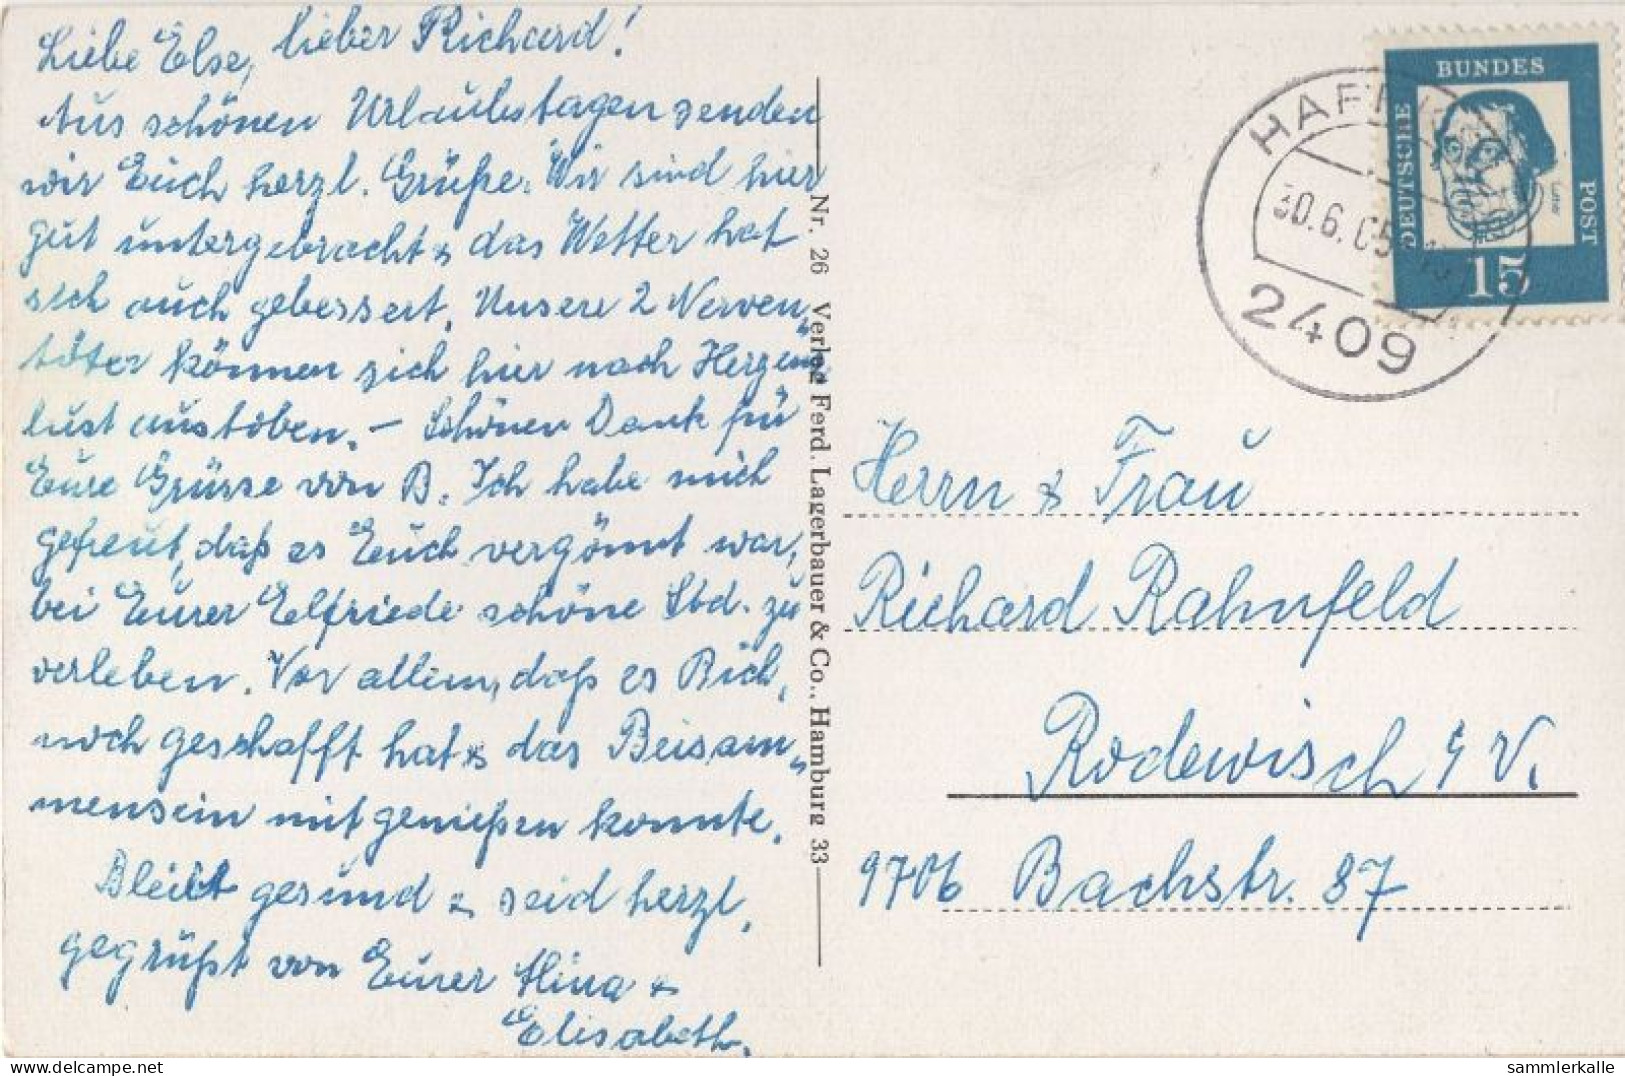 Liebe Else, lieber Richard!
Aus schönen Urlaubstagen senden
wir Euch herzl. Grüße. Wir sind hier
gut untergebracht & das Wetter hat
sich auch gebessert. Unsere 2 Nerven„
töter können sich hier nach Herzens
lust austoben. – Schönen Dank für
Eure Grüsse von B. Ich habe mich
gefreut, daß es Euch vergönnt war,
bei Eurer Elfriede schöne Std. zu
verleben. Vor allem, daß es Rich.
noch geschafft hat & das Beisam„
mensein mit genießen konnte.
Bleibt gesund & seid herzl.
gegrüßt von Eurer &
Elisabeth.
Nr. 26 Verlag Ferd. Lagerbauer & Co., Hamburg 33
DEUTSCHE
BUNDES
POST
15
30.6.65
2409
Herrn & Frau
Richard Rahnfeld
Rodewisch i V.
9706 Bachstr. 87
www.delcampe.net
sammlerkalle